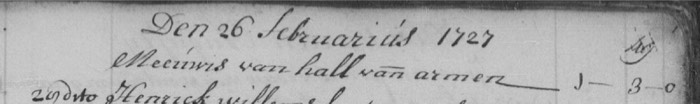 Den 26 februariús 1727
Meeúwis van hall van armen 1 — 3 — 0
29 dito Henrick willems